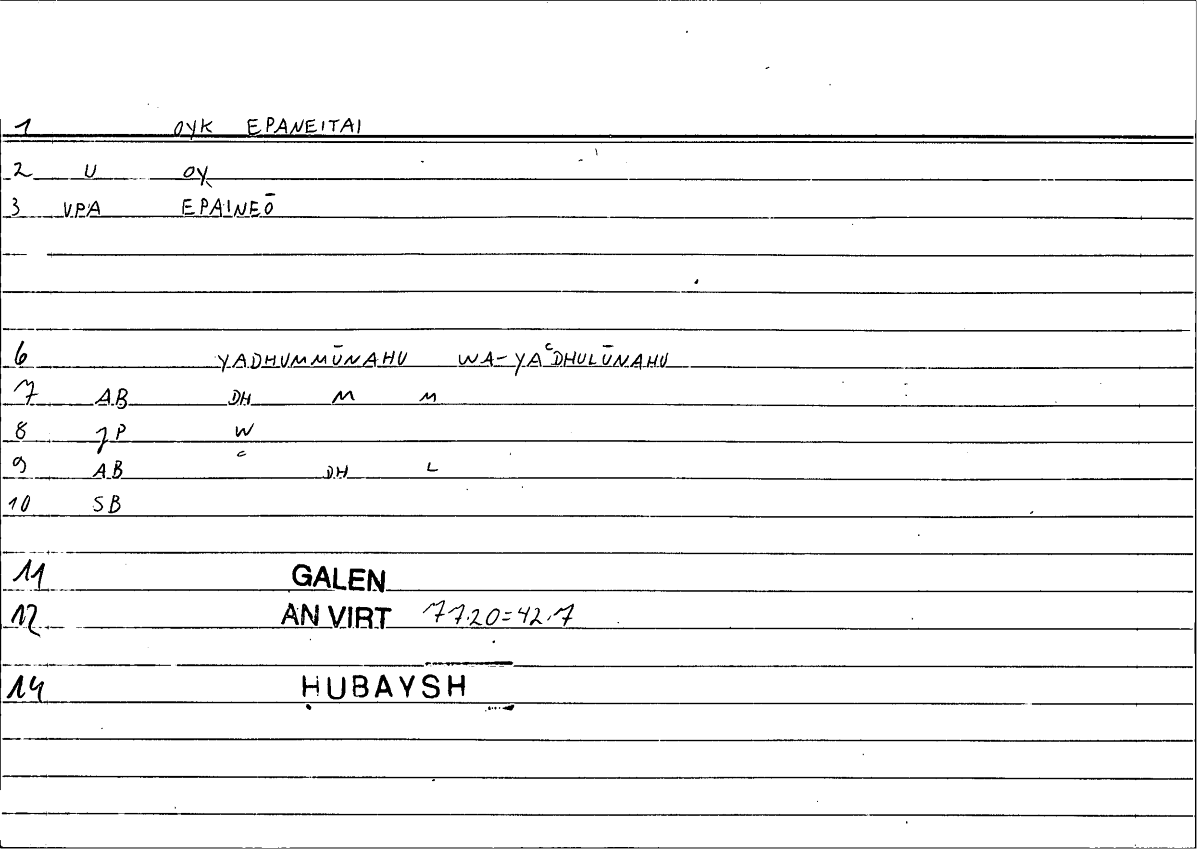 1 OYK EPANEITAI
2 U OY
3 VPA EPAINEŌ
6 YADHUMMŪNAHU WA-YAᶜDHULŪNAHU
7 AB DH M M
8 P W
9 AB ᶜ DH L
10 SB
11 GALEN
12 AN VIRT 77.20=42.7
14 ḤUBAYSH